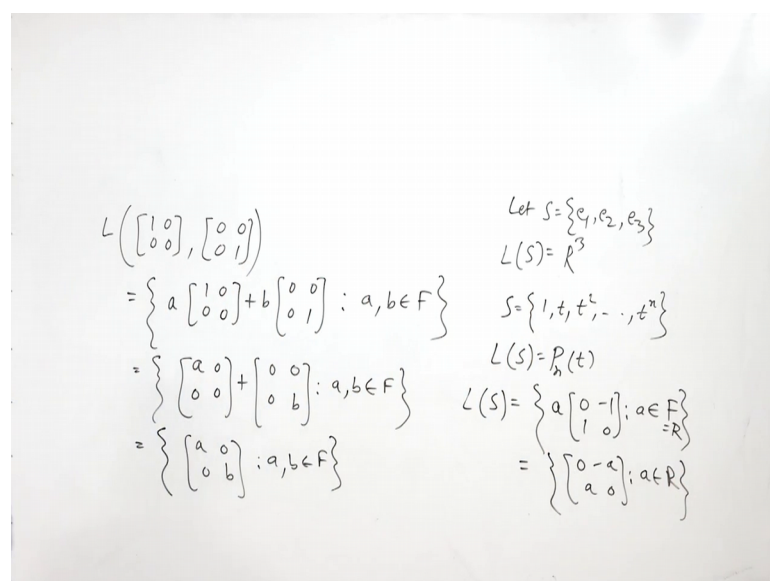 L([1 0
0 0], [0 0
0 1])
= { a [1 0
0 0] + b [0 0
0 1] : a, b ∈ F }
= { [a 0
0 0] + [0 0
0 b] : a, b ∈ F }
= { [a 0
0 b] : a, b ∈ F }
Let S = {e₁, e₂, e₃}
L(S) = R³
S = {1, t, t², - - ., tⁿ}
L(S) = Pₙ(t)
L(S) = { a [0 -1
1 0] : a ∈ F
= R }
= { [0 -a
a 0] : a ∈ R }